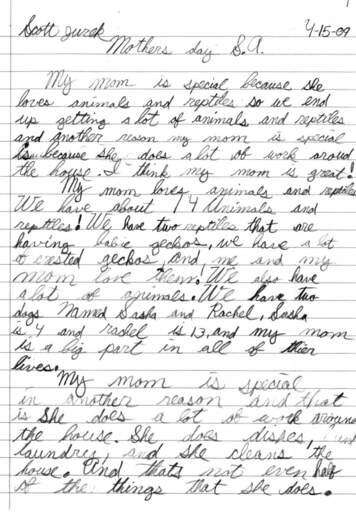 Scott Zurek 4-15-09
Mothers day S.A.
My mom is special because she
loves animals and reptiles so we end
up getting a lot of animals and reptiles
and another reason my mom is special
is because she does a lot of work around
the house. I think my mom is great!
My mom loves animals and reptiles
We have about 14 animals and
reptiles! We have two reptiles that are
having babie geckos, we have a lot
of crested geckos, and me and my
mom love them! We also have
a lot of animals. We have two
dogs Named Sasha and Rachel, Sasha
is 4 and rachel is 13, and my mom
is a big part in all of thier
lives.
My mom is special
in another reason and that
is She does a lot of work around
the house. She does dishes,
laundrey, and she cleans the
house. And thats not even half
of the things that she does.